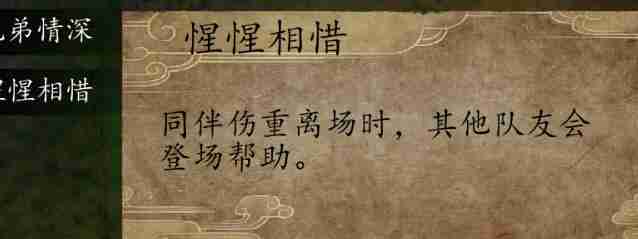 兄弟情深
惺惺相惜
惺惺相惜
同伴伤重离场时，其他队友会
登场帮助。